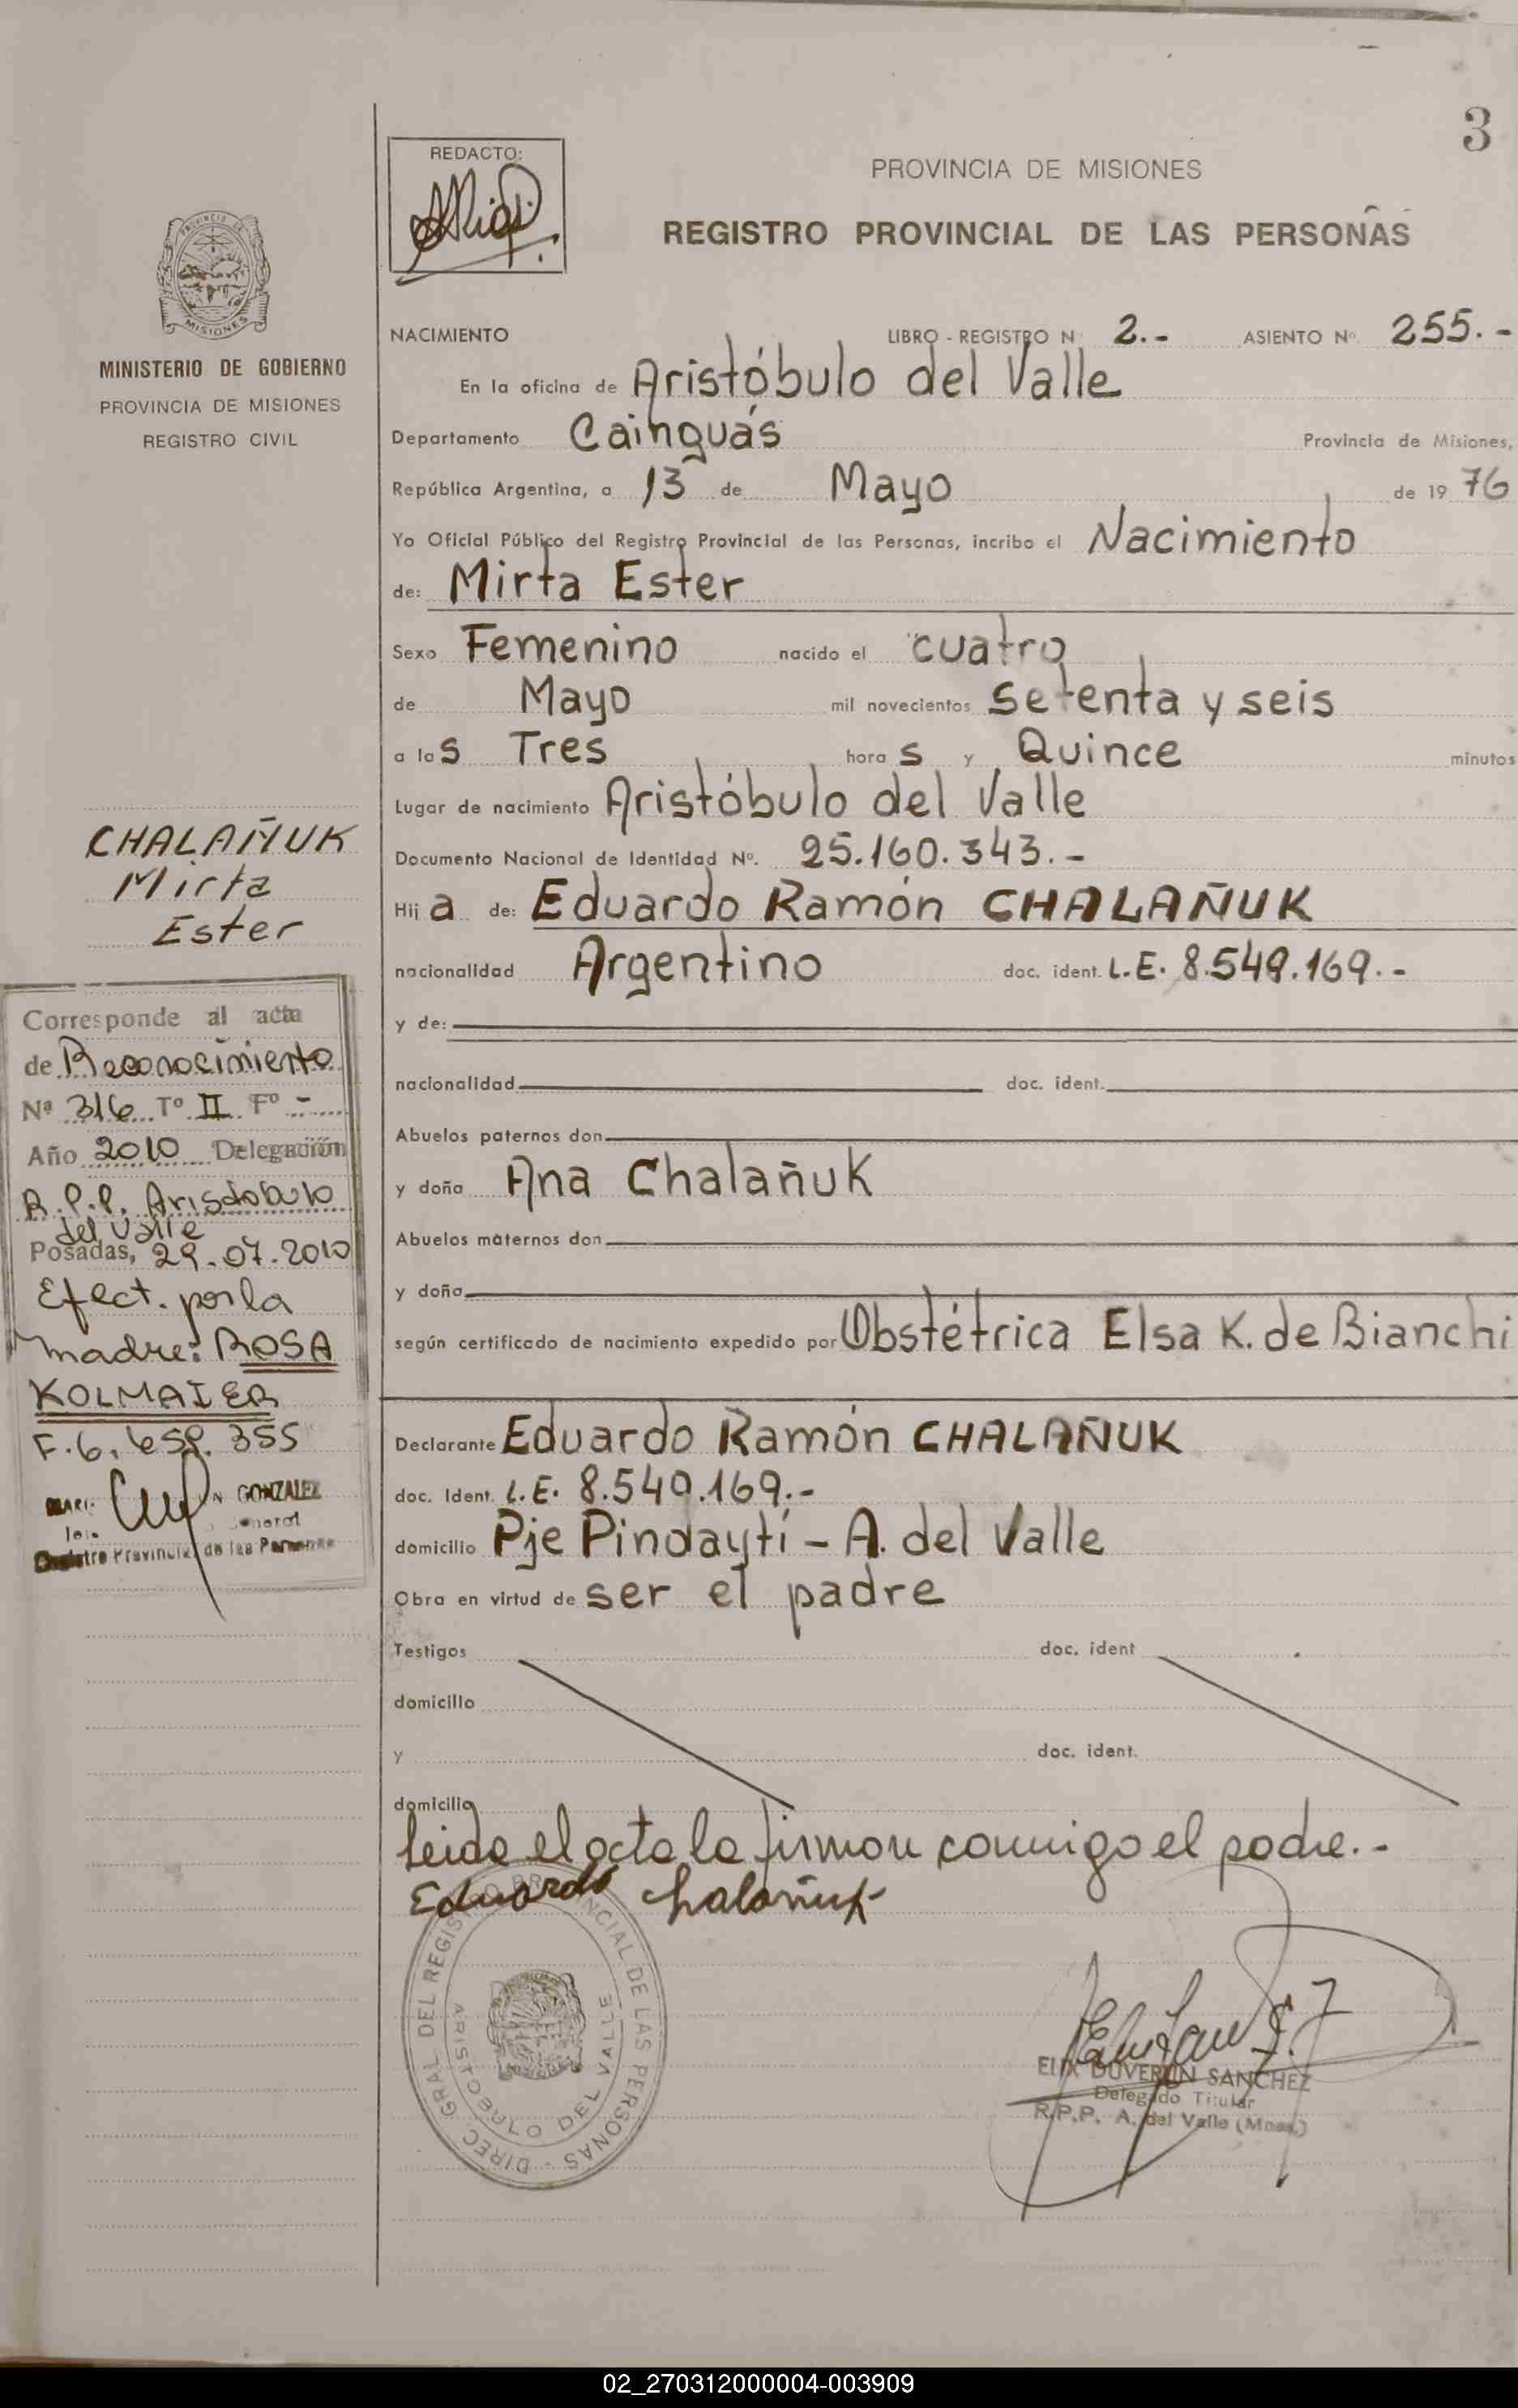 3
REDACTO:
PROVINCIA DE MISIONES
REGISTRO PROVINCIAL DE LAS PERSONAS
MISIONES
MINISTERIO DE GOBIERNO
PROVINCIA DE MISIONES
REGISTRO CIVIL
NACIMIENTO LIBRO - REGISTRO N 2.- ASIENTO Nº 255.-
En la oficina de Aristóbulo del Valle
Departamento Cainguás Provincia de Misiones,
República Argentina, a 13 de Mayo de 19 76
Yo Oficial Público del Registro Provincial de las Personas, incribo el Nacimiento
de: Mirta Ester
Sexo Femenino nacido el cuatro
de Mayo mil novecientos setenta y seis
a las Tres horas y Quince minutos
Lugar de nacimiento Aristóbulo del Valle
Documento Nacional de Identidad Nº. 25.160.343.-
Hija de: Eduardo Ramón CHALAÑUK
nacionalidad Argentino doc. ident. L.E. 8.549.169.-
y de:
nacionalidad doc. ident.
Abuelos paternos don
y doña Ana Chalañuk
Abuelos maternos don
y doña
según certificado de nacimiento expedido por Obstétrica Elsa K. de Bianchi
Declarante Eduardo Ramón CHALAÑUK
doc. Ident. L.E. 8.549.169.-
domicilio Pje Pindaytí - A. del Valle
Obra en virtud de ser el padre
Testigos doc. ident
domicilio
y doc. ident.
domicilio
Leida el acta la firman conmigo el padre.-
Eduardo Chalañuk
DIREC GRAL DEL REGISTRO PROVINCIAL DE LAS PERSONAS -
ARISTOBULO DEL VALLE
DUVERLIN SANCHEZ
Delegado Titular
R.P.P. A. del Valle (Mnes.)
CHALAÑUK
Mirta
Ester
Corresponde al acta
de Reconocimiento
Nº 316 Tº II Fº -
Año 2010 Delegación
R.P.P. Aristobulo
del Valle
Posadas, 29.07.2010
Efect. por la
madre: ROSA
KOLMAIER
F.6.658.355
GONZALEZ
General
Registro Provincial de las Personas
02_270312000004-003909